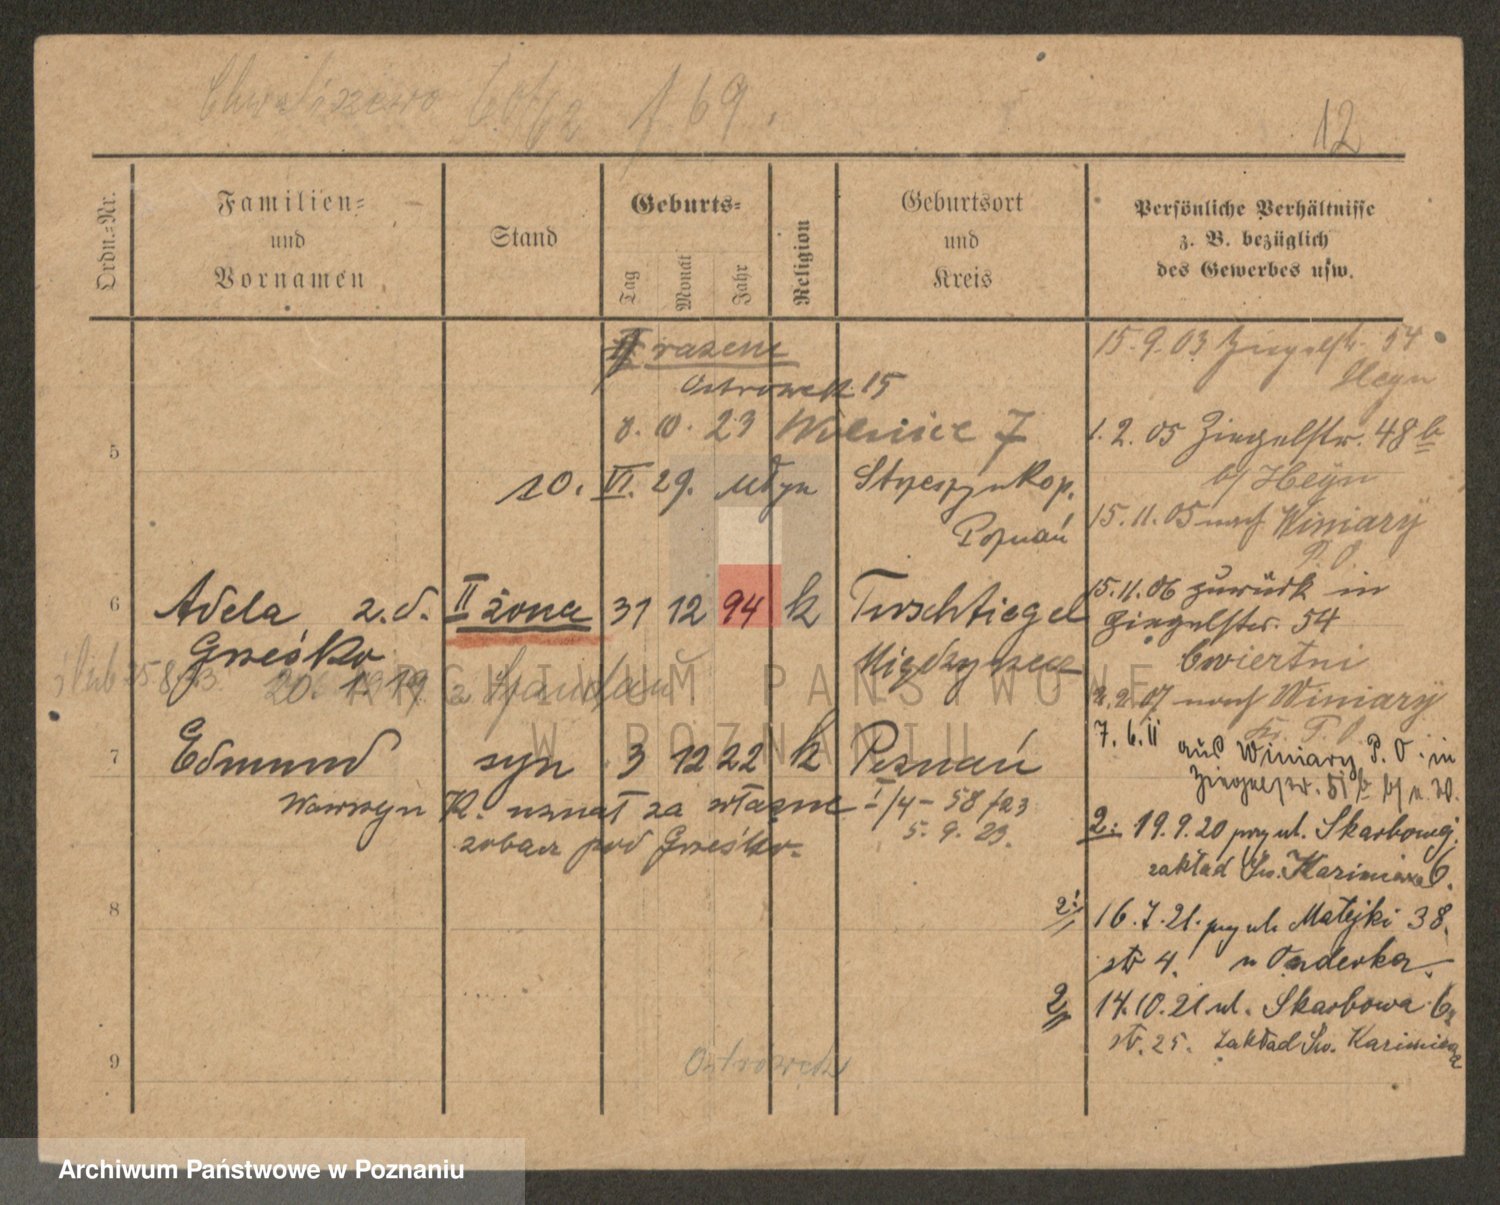 Chwaliszewo 69.
12
Ordn.-Nr.
Familien-
und
Vornamen
Stand
Geburts-
Tag
Monat
Jahr
Religion
Geburtsort
und
Kreis
Persönliche Verhältnisse
z. B. bezüglich
des Gewerbes usw.
razem
Ostrówek 15
23 7
10. VI. 29. młyn
Poznań
5
15.9.03 Ziegelstr. 54
Heyn
1.2.05 Ziegelstr. 48b
b/ Heyn
15.11.05 nach Winiary
P. O.
15.11.06 zurück in
Ziegelstr. 54
Cwiertni
2.2.07 nach Winiary
P. O.
7.6.11
aus Winiary P. O. in
Ziegelstr.
6
Adela z.d. II żona 31 12 94 k Tirschtiegel
Grześko Międzyrzecz
ślub 25 8 23
20.
7
Edmund syn 3 12 22 k Poznań
Wawrzyn K. uznał za własne I/4 - 58/23
zobacz pod Grześko. 5.9.23.
2: 19.9.20 przy ul. Skarbowej
zakład Św. Kazimierza 6.
2: 16.7.21. przy ul. Matejki 38.
str 4. u Onderka.
2 14.10.21 ul. Skarbowa 6
str. 25. Zakład Św. Kazimierza
8
9
Ostrówek
ARCHIWUM PAŃSTWOWE
W POZNANIU
Archiwum Państwowe w Poznaniu